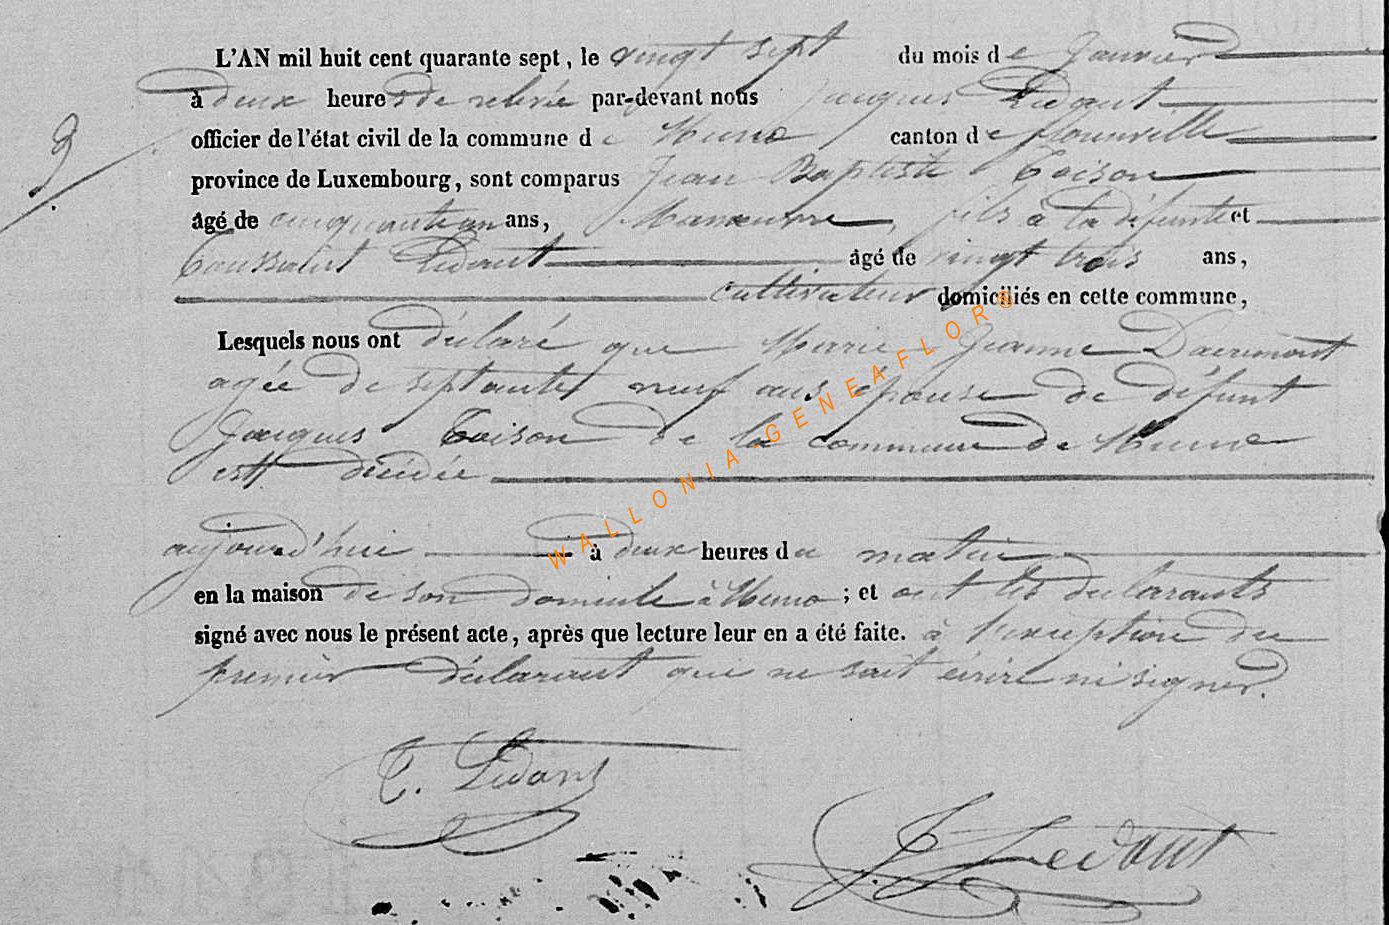 L'AN mil huit cent quarante sept, le vingt sept du mois de Janvier
à deux heures de relevée par-devant nous Jacques Ledant
officier de l'état civil de la commune de Muno canton de florenville
province de Luxembourg, sont comparus Jean Baptiste Toison
âgé de cinquante un ans, Manœuvre, fils à la défunte et
Toussaint Ledant âgé de vingt trois ans,
cultivateur domiciliés en cette commune,
Lesquels nous ont déclaré que Marie Jeanne Daumont
agée de septante neuf ans épouse de défunt
Jacques Toison de la commune de Muno
est décédée
aujourd'hui à deux heures du matin
en la maison de son domicile à Muno ; et ont les déclarants
signé avec nous le présent acte, après que lecture leur en a été faite. à l'exception du
premier déclarant qui ne sait écrire ni signer.
T. Ledant
J. Ledant
9
WALLONIA GENEAFLORS